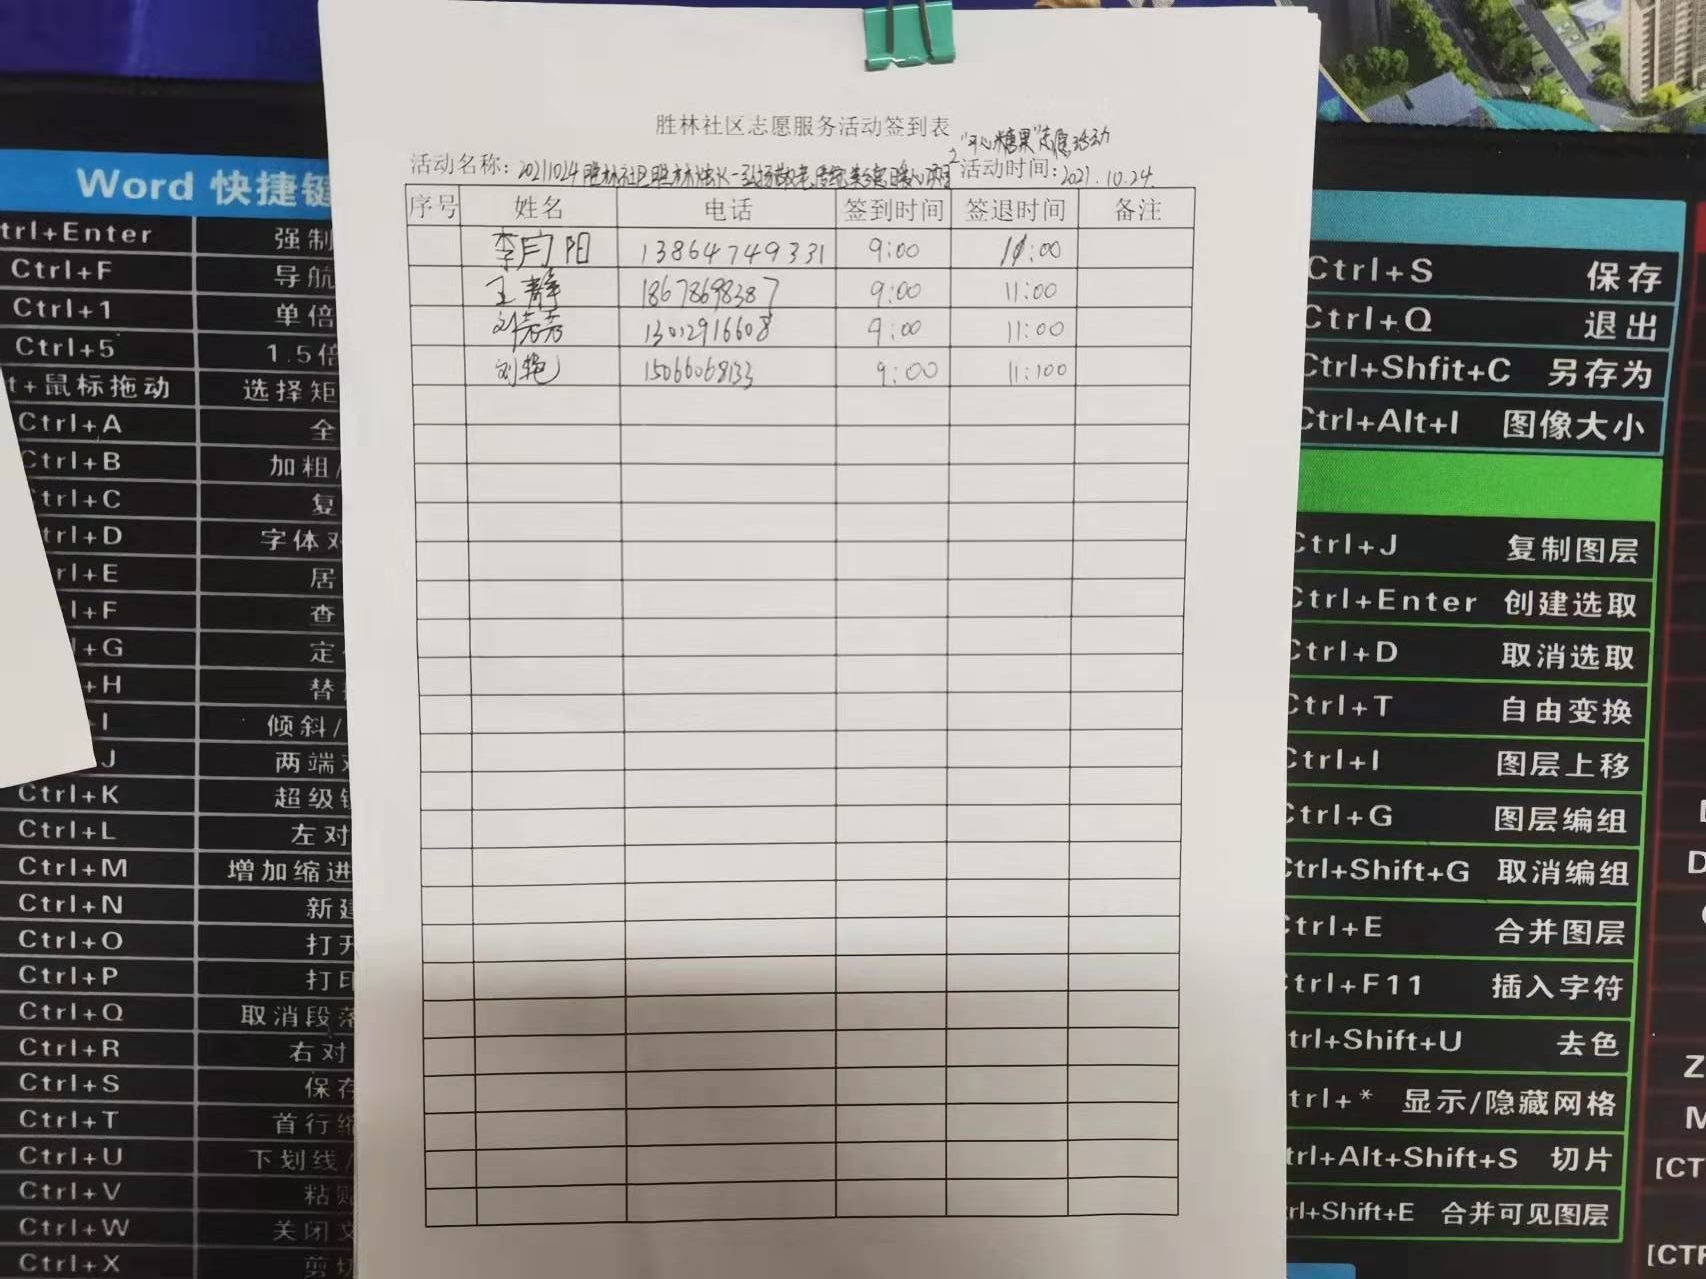 胜林社区志愿服务活动签到表
"开心糖果"志愿活动
活动名称: 20211024胜林社区胜林
活动时间: 2021.10.24.
序号 姓名 电话 签到时间 签退时间 备注
李 阳 13864749331 9:00 11:00
王静 18678698387 9:00 11:00
刘芳芳 13012916608 9:00 11:00
刘艳 15066068133 9:00 11:100
Word 快捷键
trl+Enter 强制
Ctrl+F 导航
Ctrl+1 单倍
Ctrl+5 1.5倍
t+鼠标拖动 选择矩
Ctrl+A 全
Ctrl+B 加粗/
Ctrl+C 复
trl+D 字体对
rl+E 居
l+F 查
l+G 定
+H 替
I 倾斜/
J 两端对
Ctrl+K 超级链
Ctrl+L 左对
Ctrl+M 增加缩进
Ctrl+N 新建
Ctrl+O 打开
Ctrl+P 打印
Ctrl+Q 取消段落
Ctrl+R 右对
Ctrl+S 保存
Ctrl+T 首行缩
Ctrl+U 下划线/
Ctrl+V 粘贴
Ctrl+W 关闭文
Ctrl+X 剪切
Ctrl+S 保存
Ctrl+Q 退出
Ctrl+Shfit+C 另存为
Ctrl+Alt+I 图像大小
Ctrl+J 复制图层
Ctrl+Enter 创建选取
Ctrl+D 取消选取
Ctrl+T 自由变换
Ctrl+I 图层上移
Ctrl+G 图层编组
Ctrl+Shift+G 取消编组
trl+E 合并图层
trl+F11 插入字符
trl+Shift+U 去色
trl+* 显示/隐藏网格
trl+Alt+Shift+S 切片
rl+Shift+E 合并可见图层
D
Z
M
[CT
[CTR